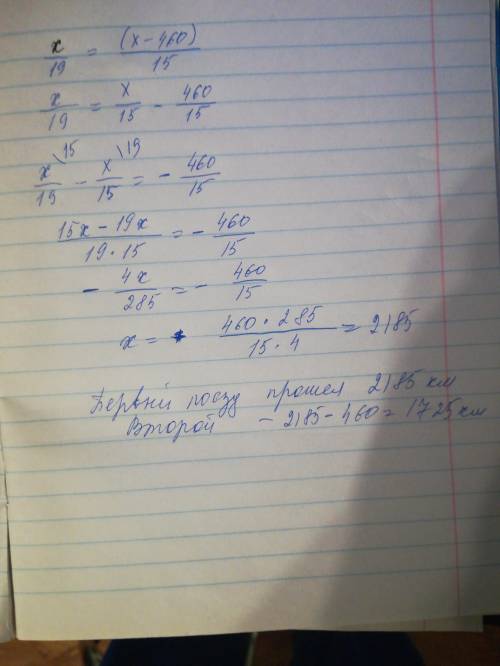 x/19 = (x-460)/15
x/19 = x/15 - 460/15
x\15/19 - x\19/15 = - 460/15
15x-19x/19·15 = - 460/15
- 4x/285 = - 460/15
x = 460·285/15·4 = 2185
Первый поезд прошел 2185 км
Второй - 2185-460=1725 км